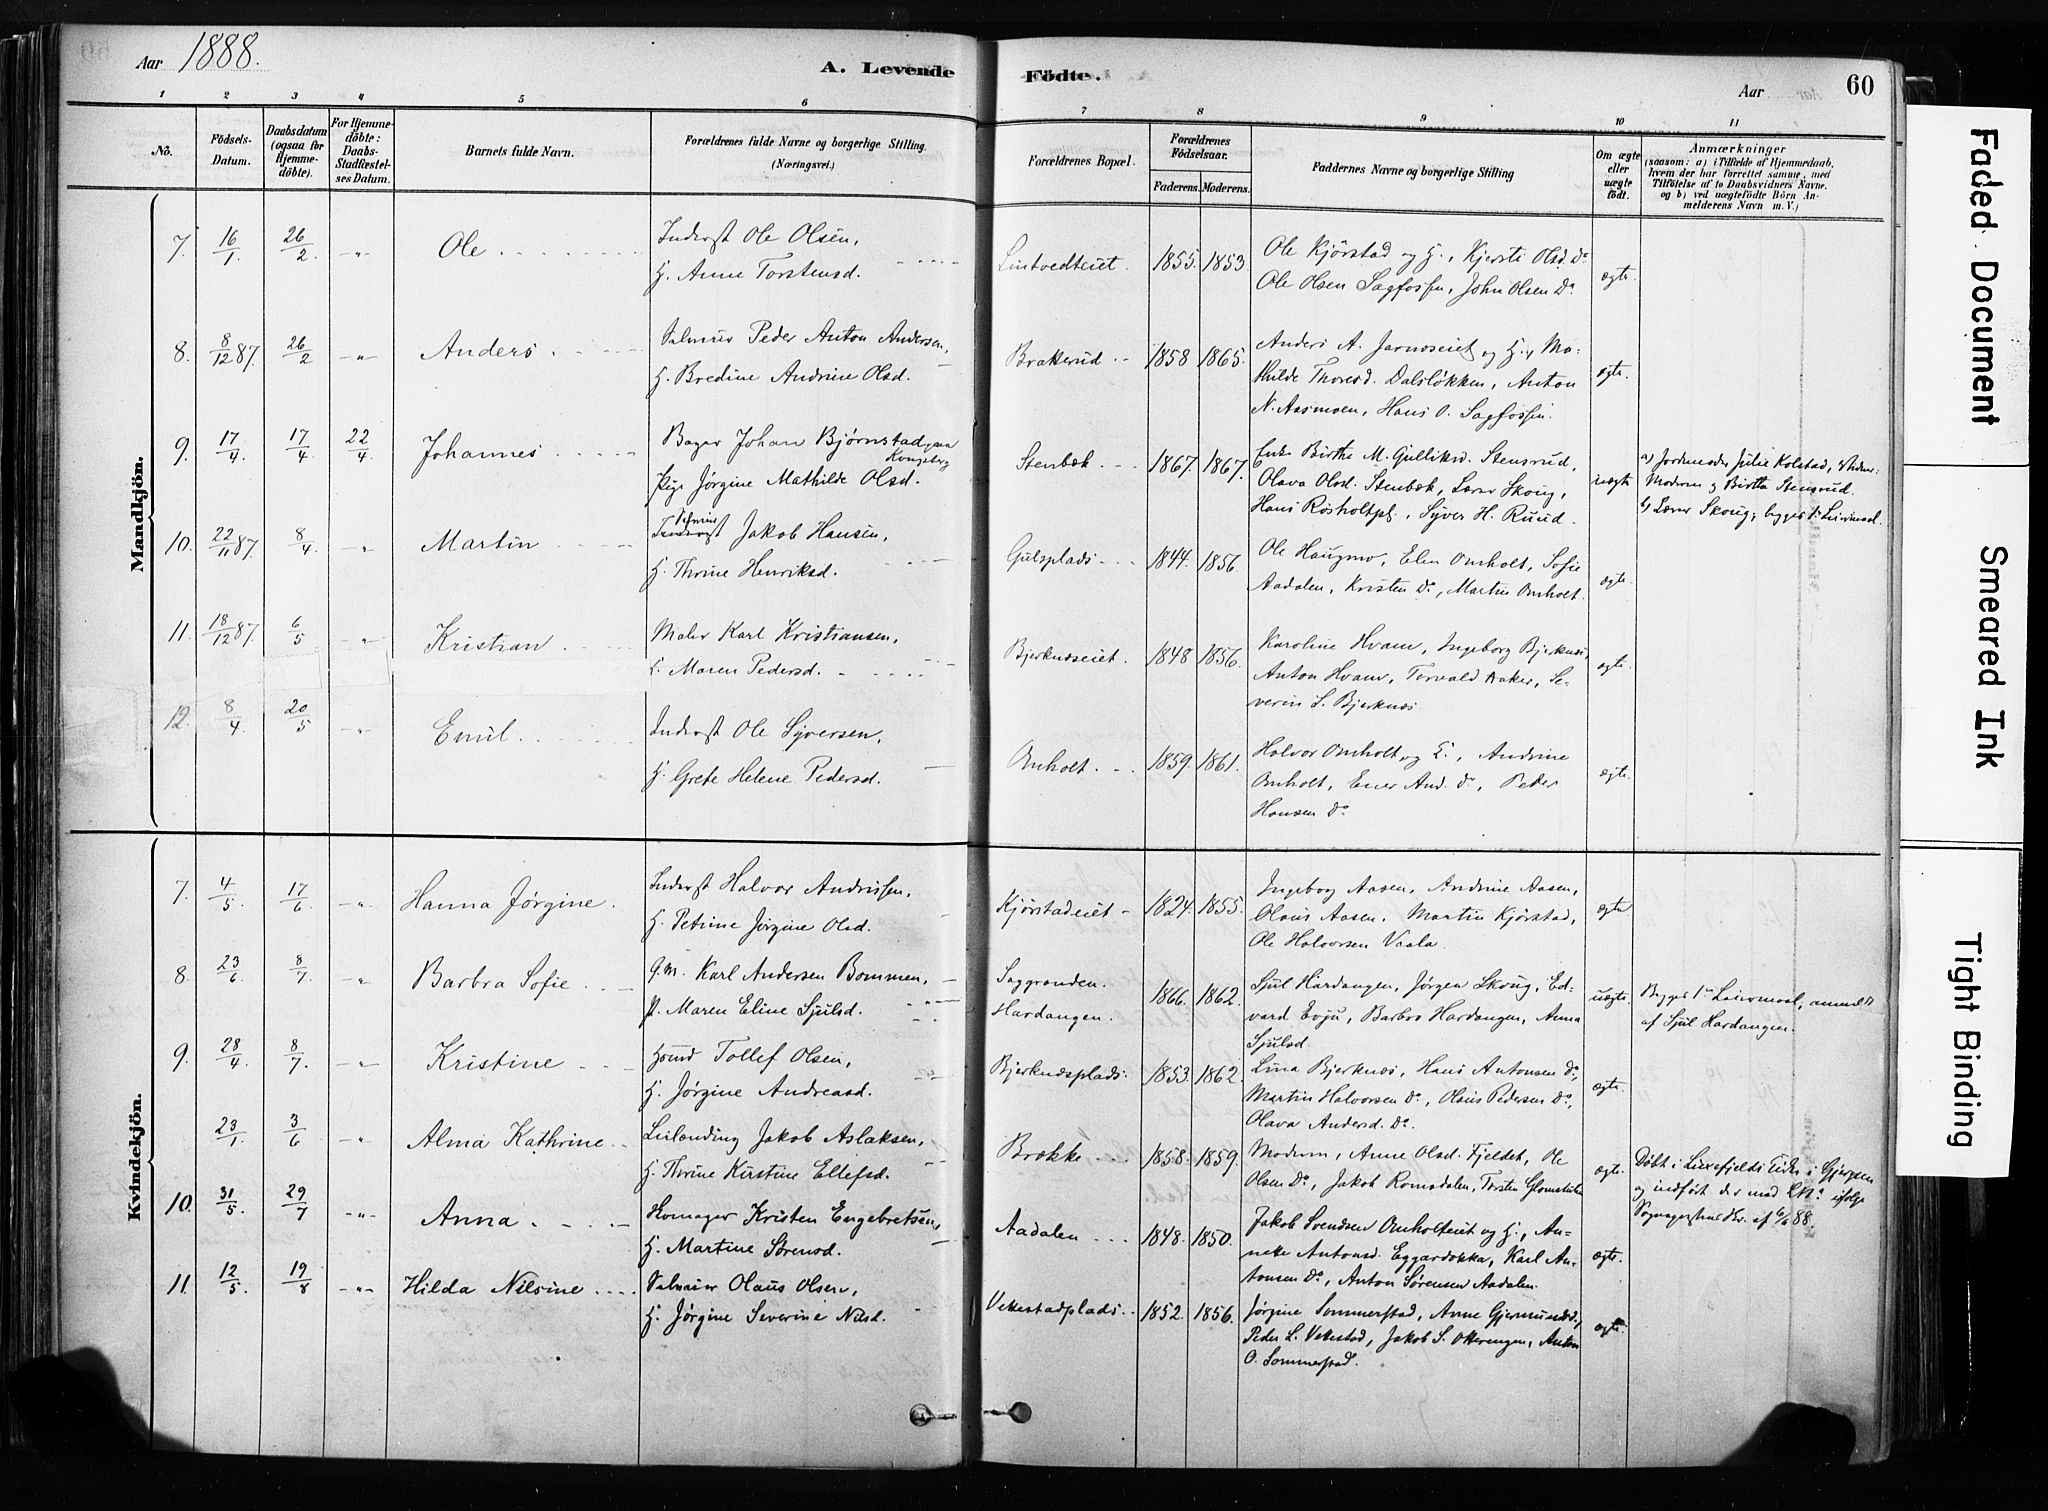 Aar 1888.
A. Levende Födte.
Aar
60
1 2 3 4 5 6 7 8 9 10 11
No.
Födsels-Datum.
Daabsdatum (ogsaa for Hjemmedöbte).
For Hjemmedöbte: Daabs-Stadfæstelses Datum.
Barnets fulde Navn.
Forældrenes fulde Navne og borgerlige Stilling. (Næringsvei.)
Forældrenes Bopæl.
Forældrenes Födselsaar.
Faderens. Moderens.
Faddernes Navne og borgerlige Stilling
Om ægte eller uægte födt.
Anmærkninger
(saasom: a) i Tilfælde af Hjemmedaab, hvem der har forrettet samme, med Tilföielse af to Daabsvidners Navne, og b) ved uægtefödte Börn Anmelderens Navn m. V.)
Mandkjön.
7. 16/1 26/2 -"- Ole
Inderst Ole Olsen,
H. Anne Torstensd.
Lintvedteiet. 1855. 1853.
Ole Kjörstad og H., Kjersti Olsd. Do
Ole Olsen Sagfossen, John Olsen Do.
ægte.
8. 8/12 87. 26/2 -"- Anders
Valmuv Peder Anton Andersen,
H. Bredine Andrine Olsd.
Brakerud 1858 1865.
Anders A. Jarnæseiet og H., Ma-
thilde Thoresd. Dalsløkken, Anton
N. Aasmoen, Hans O. Sagfossen.
ægte.
9. 17/4 17/4 22/4 Johannes
Bager Johan Bjørnstad, paa Kongsberg
Pige Jørgine Mathilde Olsd.
Stenbæk 1867. 1867.
Enke Birthe M. Gulliksd. Stensrud,
Olava Olsd. Stenbæk, Lærer Skoug,
Hans Røsholtpl., Syver H. Ruud.
uægte
a) Jordemoder Julie Kolstad, Vidner:
Moderen og Birthe Stensrud.
b) Lærer Skoug; begges 1. Leiermaal.
10. 22/11 87. 8/4 -"- Martin
Jakob Hansen,
H. Thrine Henriksd.
Gulsplads 1844. 1856
Ole Haugmo, Elen Omholt, Sofie
Aadalen, Kristen Do, Martin Omholt.
ægte.
11. 18/12 87. 6/5 -"- Kristian
Maler Karl Kristiansen,
H. Maren Pedersd.
Bjerknæseiet. 1848 1856.
Karoline Hvam, Ingeborg Bjerknæs,
Anton Hvam, Torvald Aaker, Se-
verin L. Bjerknæs.
ægte.
12. 8/4 20/5 -"- Emil
Inderst Ole Syversen,
H. Grete Helene Pedersd.
Omholt. 1859. 1861.
Halvor Omholt og H., Andrine
Omholt, Ener And. Do, Peder
Hansen Do
ægte.
Kvindekjön.
7. 4/5 17/6 -"- Hanna Jørgine.
Inderst Halvor Andrissen,
H. Petrine Jørgine Olsd.
Kjørstadeiet 1824. 1855.
Ingeborg Aasen, Andrine Aasen,
Olaus Aasen, Martin Kjørstad,
Ole Halvorsen Vaala.
ægte.
8. 23/6 8/7 -"- Barbra Sofie
G.M. Karl Andersen Bommen,
P. Maren Eline Sjulsd.
Saggranden.
Hardangen. 1866. 1862.
Sjul Hardangen, Jørgen Skoug, Ed-
vard Evju, Barbro Hardangen, Anna
Sjulsd.
uægte.
Begges 1ste Leiermaal, anmeldt
af Sjul Hardangen.
9. 28/4 8/7 -"- Kristine
Tollef Olsen,
H. Jørgine Andreasd.
Bjerknæsplads. 1853. 1862.
Lina Bjerknæs, Hans Antonsen Do,
Martin Halvorsen Do, Olaus Pedersen Do,
Olava Andersd. Do.
ægte.
23/1 3/6 -"- Alma Kathrine
Leilending Jakob Aslaksen,
H. Thrine Kirstine Ellefsd.
Brække 1858. 1859.
Modern, Anne Olsd. Fjeldet, Ole
Olsen Do, Jakob Romsdalen, Torsten
ægte.
Døbt i Luxefjelds Kirke i Gjerpen
og indført der med No. ifølge
Sognepræstens Br. af 6/6 88.
10. 31/5 29/7 -"- Anna
Homager Kristen Engebretsen,
H. Martine Sørensd.
Aadalen 1848. 1850.
Jakob Svendsen Omholteiet og H., An-
nette Antonsd. Eggardokka, Karl An-
tonsen Do, Anton Sørensen Aadalen.
ægte.
11. 12/5 19/8 -"- Hilda Nilsine
Olaus Olsen,
H. Jørgine Severine Nilsd.
Vekestadplads. 1852. 1856.
Jørgine Sommerstad, Anne Gjermundsd,
Peder L. Vekestad, Jakob S. Otterengen, Anton
O. Sommerstad.
ægte.
Faded Document
Smeared Ink
Tight Binding